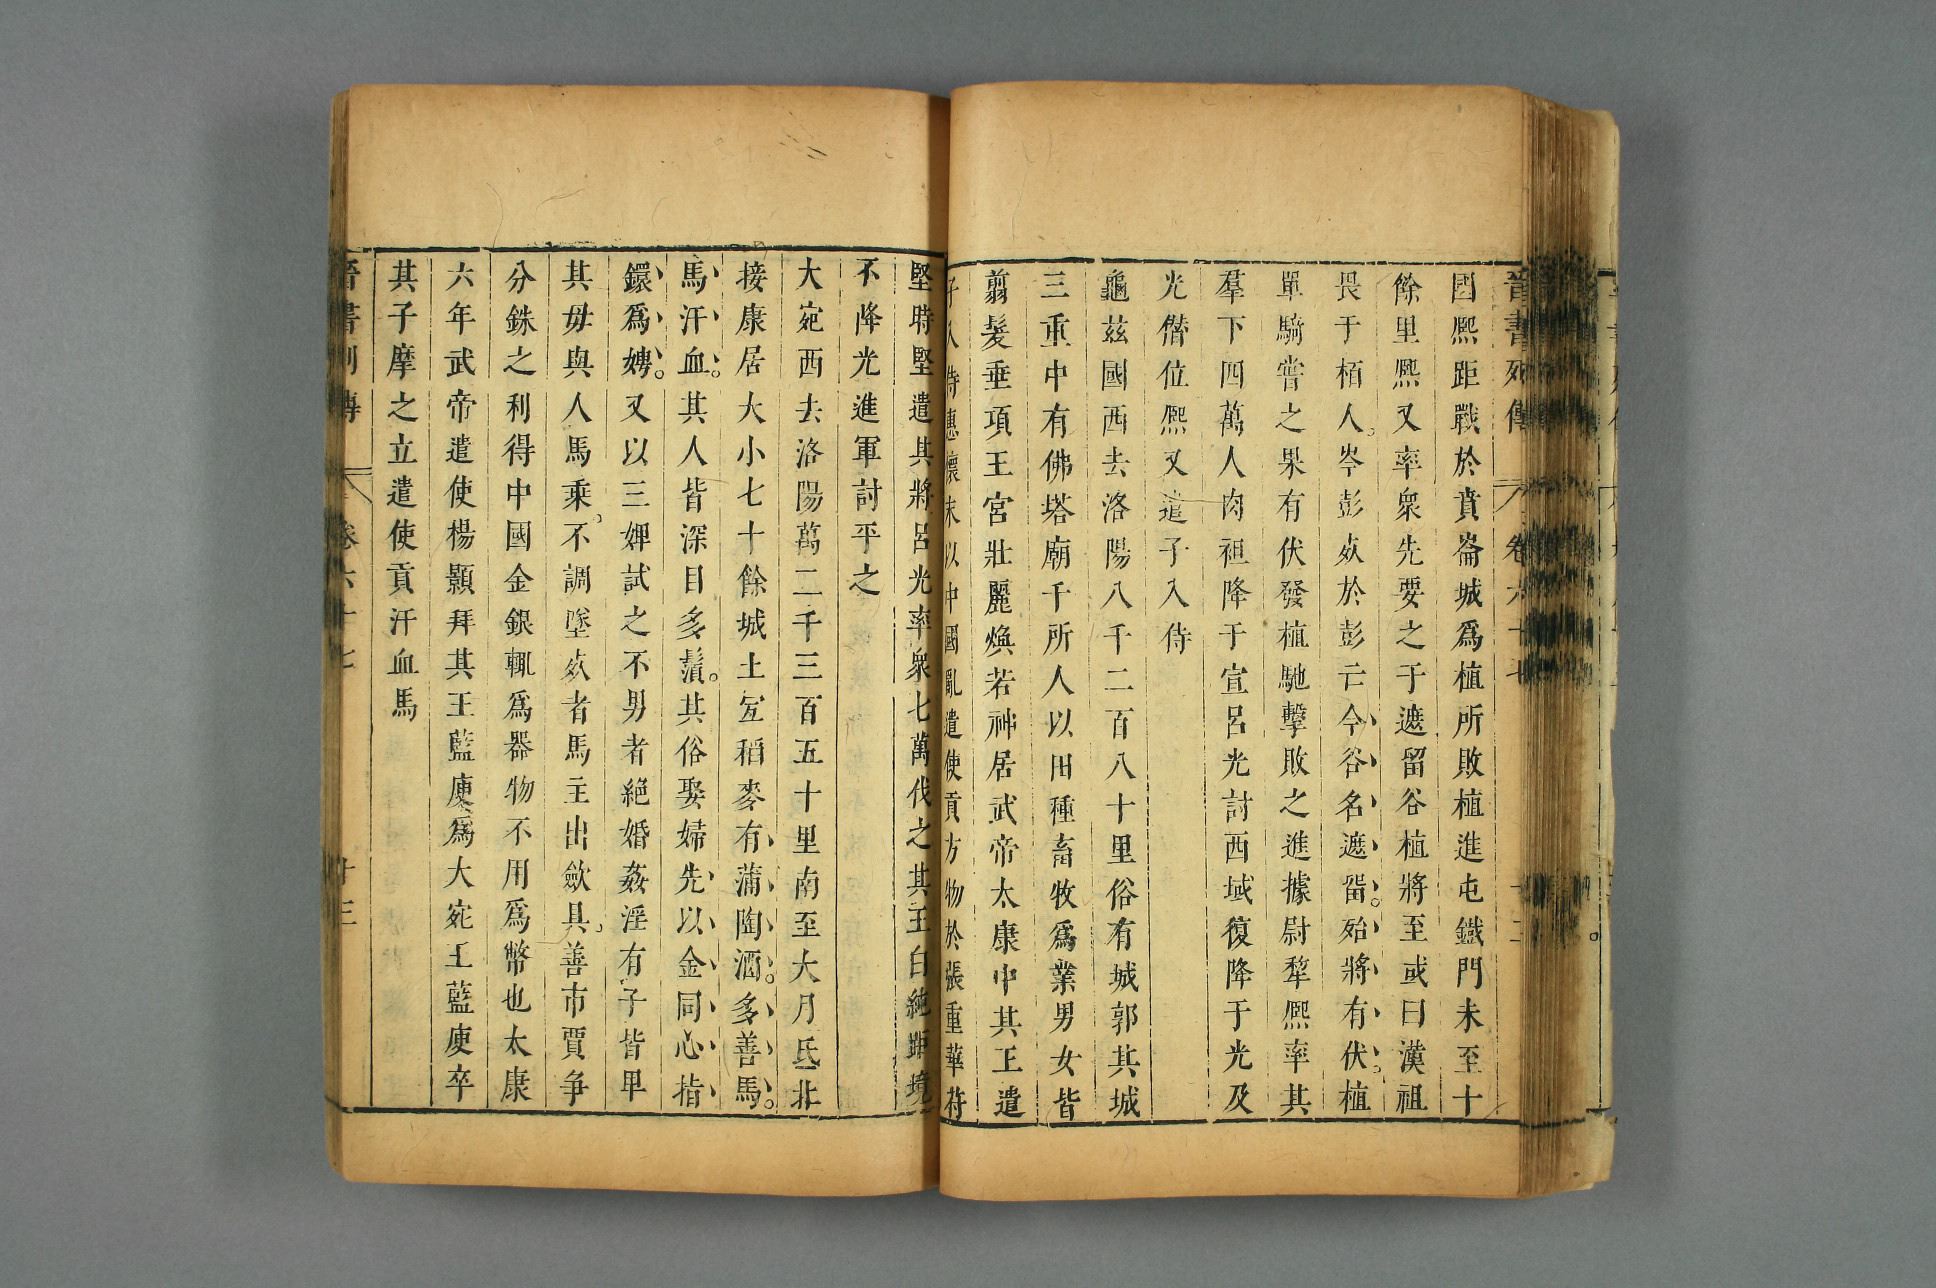 晉書列傳 卷六十七 十三
國熈距戰於賁崙城爲植所敗植進屯鐵門未至十
餘里熈又率衆先要之于遮留谷植將至或曰漢祖
畏于栢人岑彭奴於彭亡今谷名遮畱殆將有伏植
單騎嘗之果有伏發植馳擊敗之進據尉犂熈率其
羣下四萬人肉袒降于宣呂光討西域復降于光及
光僭位熈又遣子入侍
龜茲國西去洛陽八千二百八十里俗有城郭其城
三重中有佛塔廟千所人以田種畜牧爲業男女皆
翦髮垂項王宮壯麗煥若神居武帝太康中其王遣
子入侍惠懷末以中國亂遣使貢方物於張重華苻
堅時堅遣其將呂光率衆七萬伐之其王白純距境
不降光進軍討平之
大宛西去洛陽萬二千三百五十里南至大月氏北
接康居大小七十餘城土宜稻麥有蒲陶酒多善馬
馬汗血其人皆深目多鬚其俗娶婦先以金同心指
鐶爲娉又以三婢試之不男者絕婚姦淫有子皆卑
其毋與人馬乘不調墜奴者馬主出歛具善市賈争
分銖之利得中國金銀輒爲器物不用爲幣也太康
六年武帝遣使楊顥拜其王藍庾爲大宛王藍庾卒
其子摩之立遣使貢汗血馬
晉書列傳 卷六十七 十三